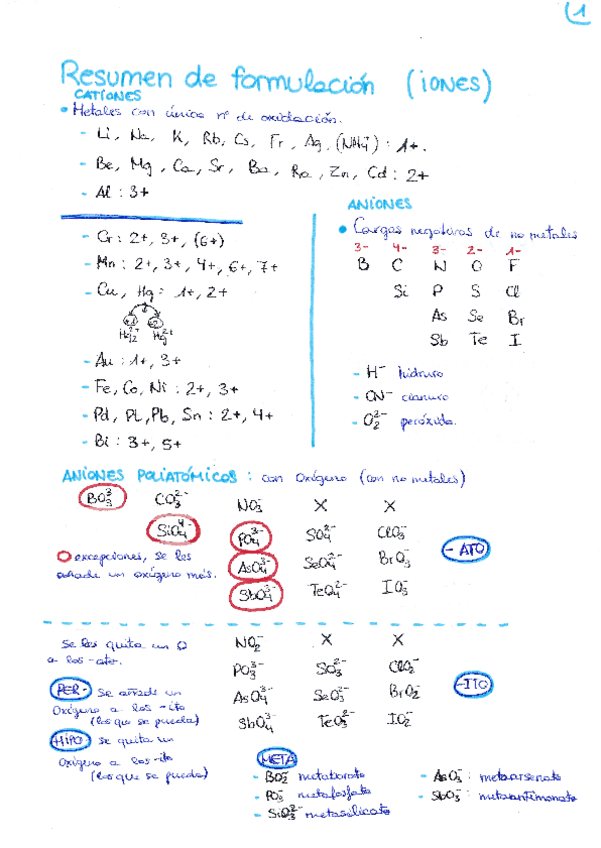 1
Resumen de formulación (iones)
CATIONES
• Metales con único nº de oxidación.
- Li, Na, K, Rb, Cs, Fr, Ag, (NH₄⁺) : 1+.
- Be, Mg, Ca, Sr, Ba, Ra, Zn, Cd : 2+
- Al : 3+
- Cr : 2+, 3+, (6+)
- Mn : 2+, 3+, 4+, 6+, 7+
- Cu, Hg : 1+, 2+
+1 +2
Hg₂²⁺ Hg²⁺
- Au : 1+, 3+
- Fe, Co, Ni : 2+, 3+
- Pd, Pt, Pb, Sn : 2+, 4+
- Bi : 3+, 5+
ANIONES
• Cargas negativas de no metales
3- 4- 3- 2- 1-
B C N O F
Si P S Cl
As Se Br
Sb Te I
- H⁻ hidruro
- CN⁻ cianuro
- O₂²⁻ peróxido.
ANIONES POLIATÓMICOS : con Oxígeno (con no metales)
BO₃³⁻ CO₃²⁻ NO₃⁻ X X
SiO₄⁴⁻ PO₄³⁻ SO₄²⁻ ClO₃⁻
AsO₄³⁻ SeO₄²⁻ BrO₃⁻
SbO₄³⁻ TeO₄²⁻ IO₃⁻
- ATO
O excepciones, se les
añade un oxígeno más.
Se les quita un O
a los -ato.
NO₂⁻ X X
PO₃³⁻ SO₃²⁻ ClO₂⁻
AsO₄³⁻ SeO₃²⁻ BrO₂⁻
SbO₄³⁻ TeO₃²⁻ IO₂⁻
-ITO
PER- se añade un
Oxígeno a los -ito
(los que se pueda)
HIPO- se quita un
Oxígeno a los -ito
(los que se pueda)
META
- BO₂⁻ metaborato
- PO₃⁻ metafosfato
- SiO₃²⁻ metasilicato
- AsO₃⁻ : metaarsenato
- SbO₃⁻ : metaantimonato